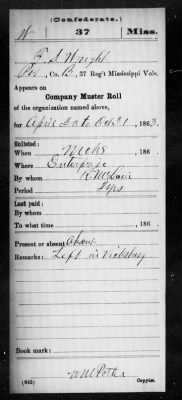 (Confederate.)
W 37 Miss.
Wright
Co. B, 37 Reg't Mississippi Vols.
Appears on
Company Muster Roll
of the organization named above,
for April 30 to Oct 31, 1863.
Enlisted:
When 186 .
Where Enterprise
By whom
Period
Last paid:
By whom
To what time , 186 .
Present or absent Absent
Remarks: Left in Vicksburg
Book mark:
(642) Copyist.